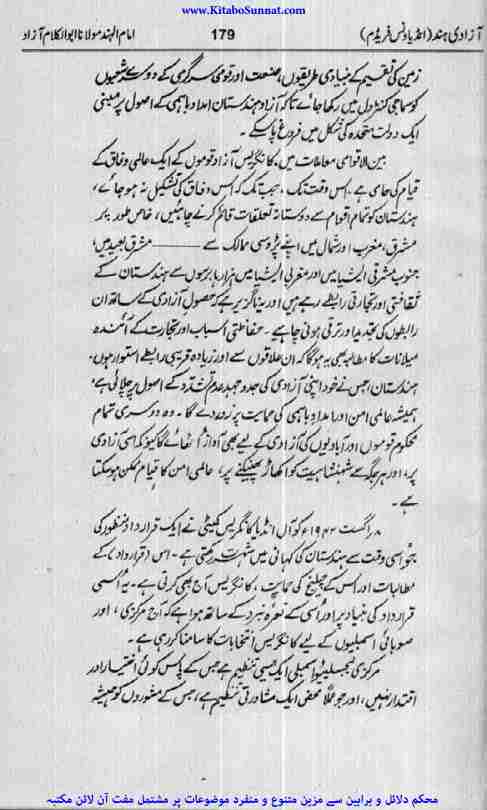 www.KitaboSunnat.com
آزادی ہند (انڈیا ونس فریڈم)
179
امام الہند مولانا ابوالکلام آزاد
زمین کی تقسیم کے بنیادی طریقوں، صنعت اور قومی سرگرمی کے دوسرے شعبوں
کو سماجی کنٹرول میں رکھا جائے تاکہ آزاد ہندستان امداد باہمی کے اصول پر مبنی
ایک دولت متحدہ کی شکل میں فروغ پا سکے۔
بین الاقوامی معاملات میں، کانگریس آزاد قوموں کے ایک عالمی وفاق کے
قیام کی حامی ہے۔ اس وقت تک، جب تک کہ اس وفاق کی تشکیل نہ ہو جائے،
ہندستان کو تمام اقوام سے دوستانہ تعلقات قائم کرنے چاہئیں، خاص طور پر
مشرق، مغرب اور شمال میں اپنے پڑوسی ممالک سے ——— مشرق بعید میں،
جنوب مشرقی ایشیا میں اور مغربی ایشیا میں ہزارہا برسوں سے ہندستان کے
ثقافتی اور تجارتی رابطے رہے ہیں اور یہ ناگزیر ہے کہ حصول آزادی کے ساتھ ان
رابطوں کی تجدید اور ترقی ہونی چاہیے۔ حفاظتی اسباب اور تجارت کے آئندہ
میلانات کا مطالبہ بھی یہ ہوگا کہ ان علاقوں سے اور زیادہ قریبی رابطے استوار ہوں۔
ہندستان، جس نے خود اپنی آزادی کی جدوجہد عدم تشدد کے اصول پر چلائی ہے،
ہمیشہ عالمی امن اور امداد باہمی کی حمایت پر زور دے گا۔ وہ دوسری تمام
محکوم قوموں اور آبادیوں کی آزادی کے لیے بھی آواز اٹھائے گا کیونکہ اسی آزادی
پر، اور ہر جگہ سے شہنشاہیت کو اکھاڑ پھینکنے پر، عالمی امن کا قیام ممکن ہو سکتا
ہے۔
۸؍ اگست ۱۹۴۲ء کو آل انڈیا کانگریس کمیٹی نے ایک قرارداد منظور کی
جو اسی وقت سے ہندستان کی کہانی میں شہرت رکھتی ہے۔ اس (قرارداد) کے
مطالبات اور اس کے چیلنج کی حمایت، کانگریس آج بھی کرتی ہے۔ یہ اُسی
قرارداد کی بنیاد پر اور اُسی کے نعرۂ نبرد کے ساتھ ہوا ہے کہ آج مرکزی، اور
صوبائی اسمبلیوں کے لیے کانگریس انتخابات کا سامنا کر رہی ہے۔
مرکزی لیجسلیٹو اسمبلی ایک ایسی تنظیم ہے جس کے پاس کوئی اختیار اور
اقتدار نہیں، اور جو عملاً محض ایک مشاورتی تنظیم ہے، جس کے مشوروں کو ہمیشہ
محکم دلائل و براہین سے مزین متنوع و منفرد موضوعات پر مشتمل مفت آن لائن مکتبہ